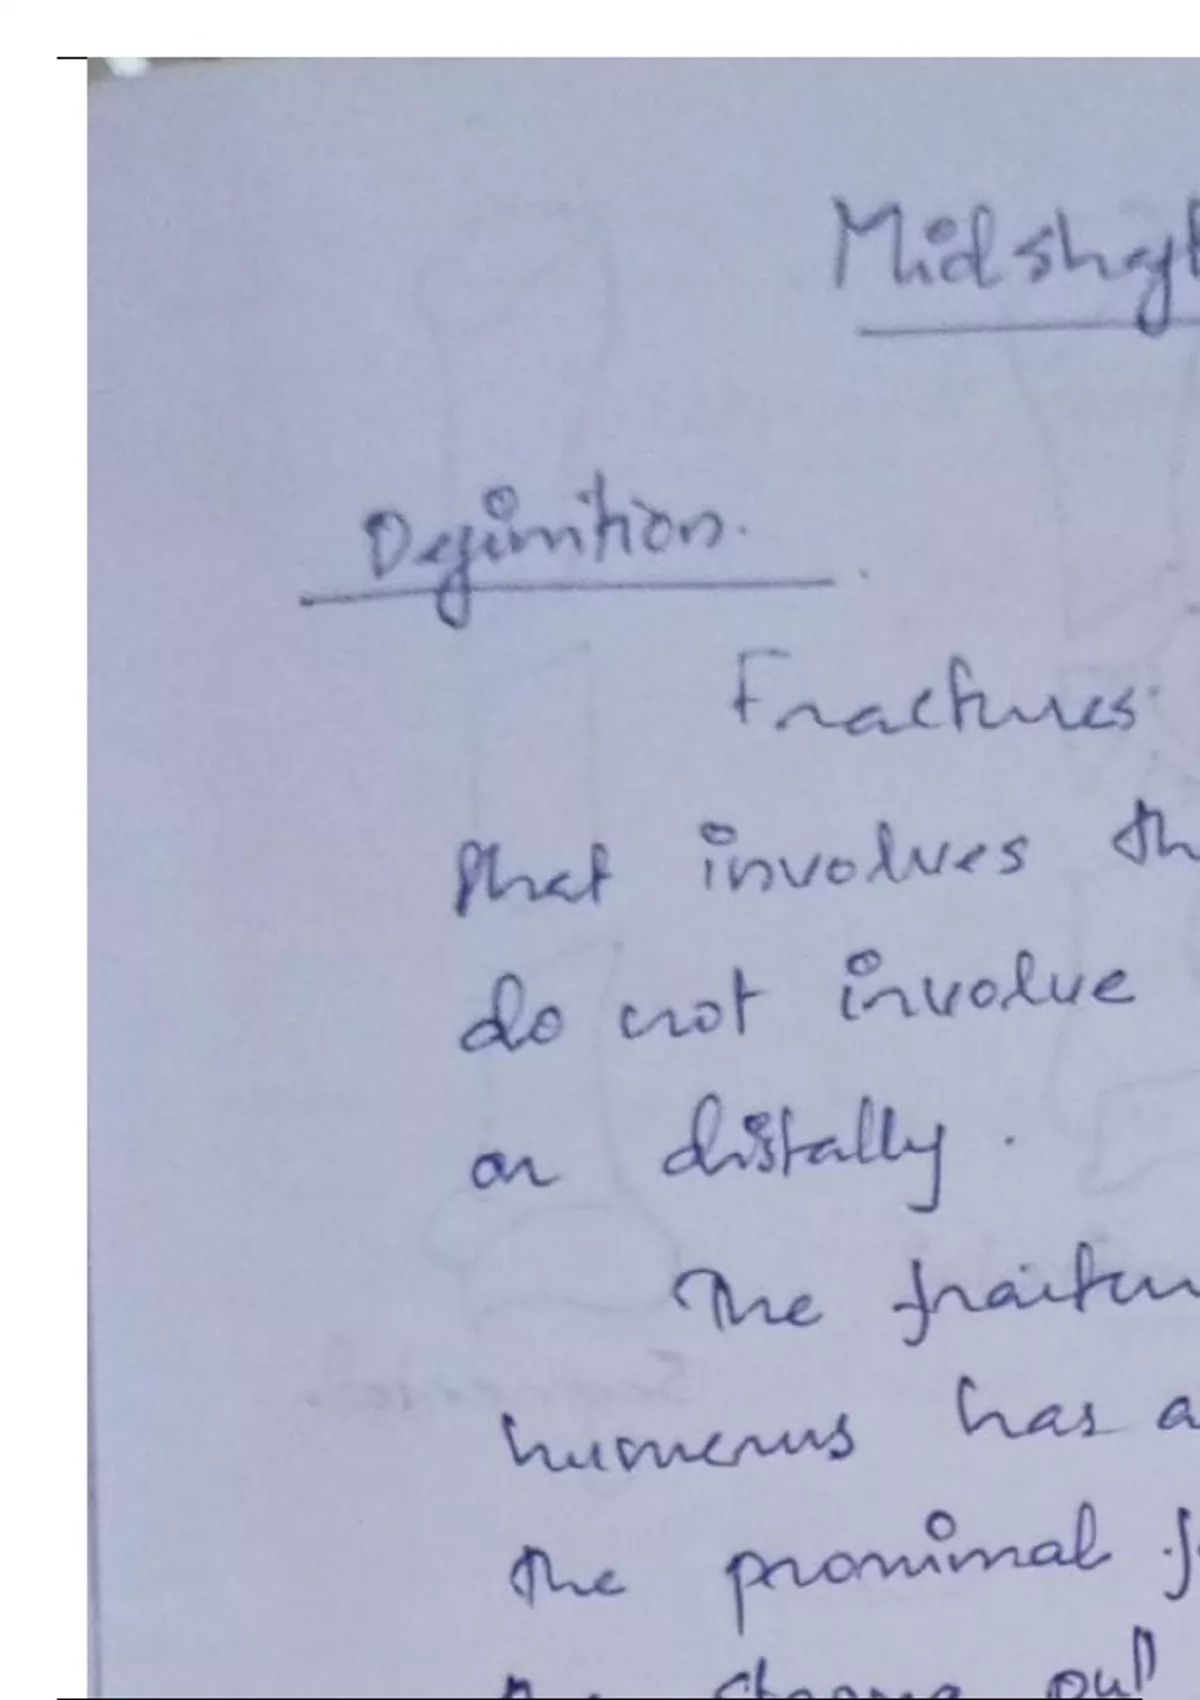 Midshaft
Definition.
Fractures
that involves th
do not involve
or distally.
The fractur
humerus has a
the proximal f
strong pull